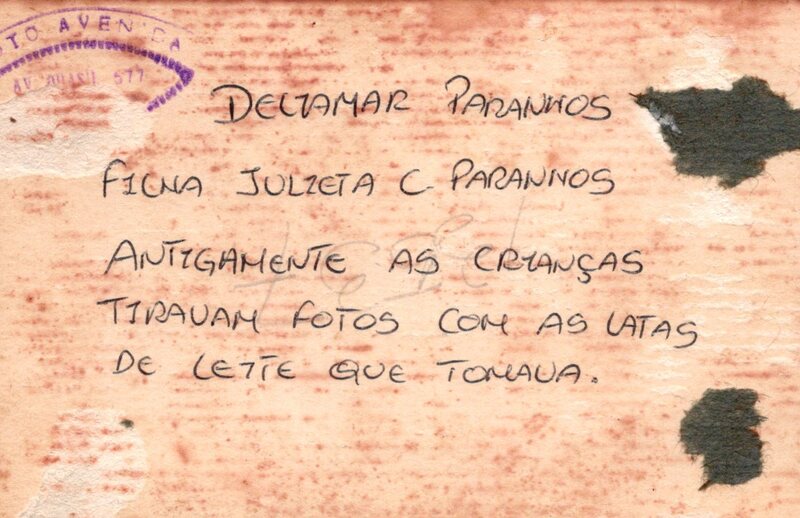 FOTO AVENIDA
AV. BRASIL, 577
DELIAMAR PARANHOS
FILHA JULIETA C. PARANHOS
ANTIGAMENTE AS CRIANÇAS
TIRAVAM FOTOS COM AS LATAS
DE LEITE QUE TOMAVA.